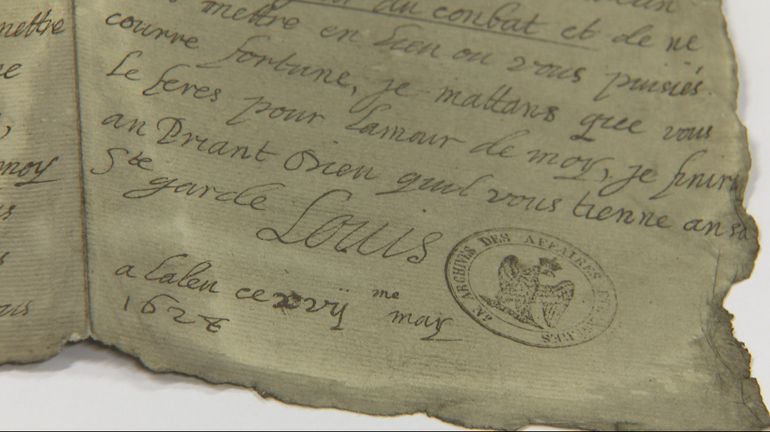 mettre
du combat et de ne
mettre en lieu ou vous puisiés
courre fortune, je mattans que vous
le feres pour lamour de moy, je finir
an Priant Dieu quil vous tienne an sa
Ste garde
Louis
a Laleu ce xvij me may
1628
moy
ous
ARCHIVES DES AFFAIRES ETRANGERES